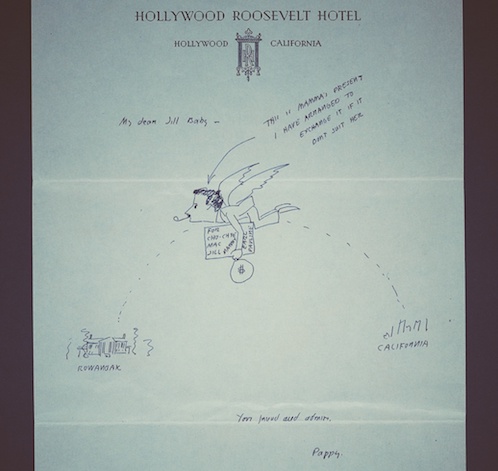 HOLLYWOOD ROOSEVELT HOTEL
HOLLYWOOD CALIFORNIA
My dear Jill Baby –
THIS IS MAMMA'S PRESENT
I HAVE ARRANGED TO
EXCHANGE IT IF IT
DONT SUIT HER
FOR
CHO-CHO
MAC
JILL
$
ROWANOAK
CALIFORNIA
Your friend and admirer.
Pappy.